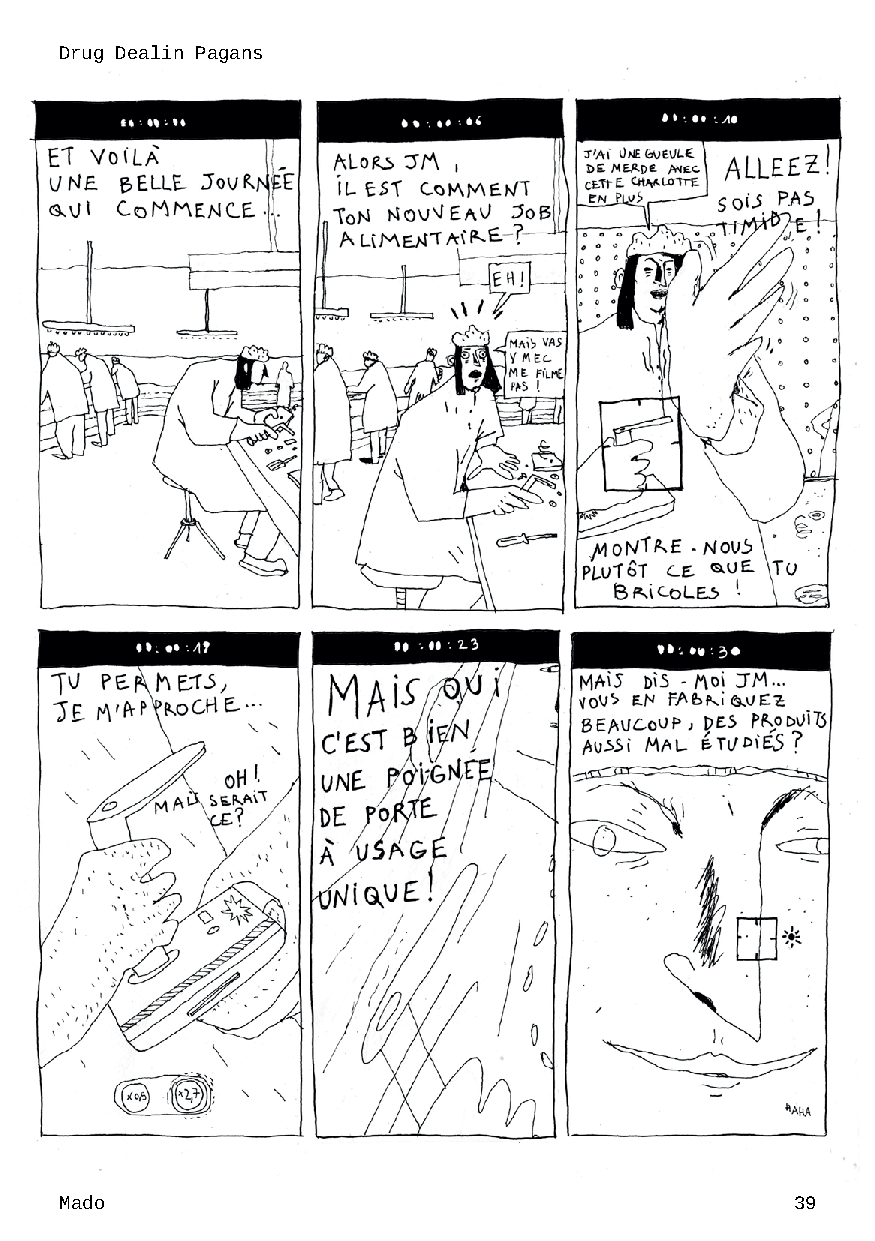 Drug Dealin Pagans
ET VOILÀ
UNE BELLE JOURNÉE
QUI COMMENCE...
ALORS JM,
IL EST COMMENT
TON NOUVEAU JOB
ALIMENTAIRE ?
EH !
MAIS VAS
Y MEC
ME FILME
PAS !
J'AI UNE GUEULE
DE MERDE AVEC
CETTE CHARLOTTE
EN PLUS
ALLEEZ !
SOIS PAS
TIMIDE !
MONTRE-NOUS
PLUTÔT CE QUE TU
BRICOLES !
TU PERMETS,
JE M'APPROCHE...
OH !
MAIS SERAIT
CE ?
x0,5
x2,7
:23
MAIS QUI
C'EST BIEN
UNE POIGNÉE
DE PORTE
À USAGE
UNIQUE !
:30
MAIS DIS-MOI JM...
VOUS EN FABRIQUEZ
BEAUCOUP, DES PRODUITS
AUSSI MAL ÉTUDIÉS ?
HAHA
Mado
39